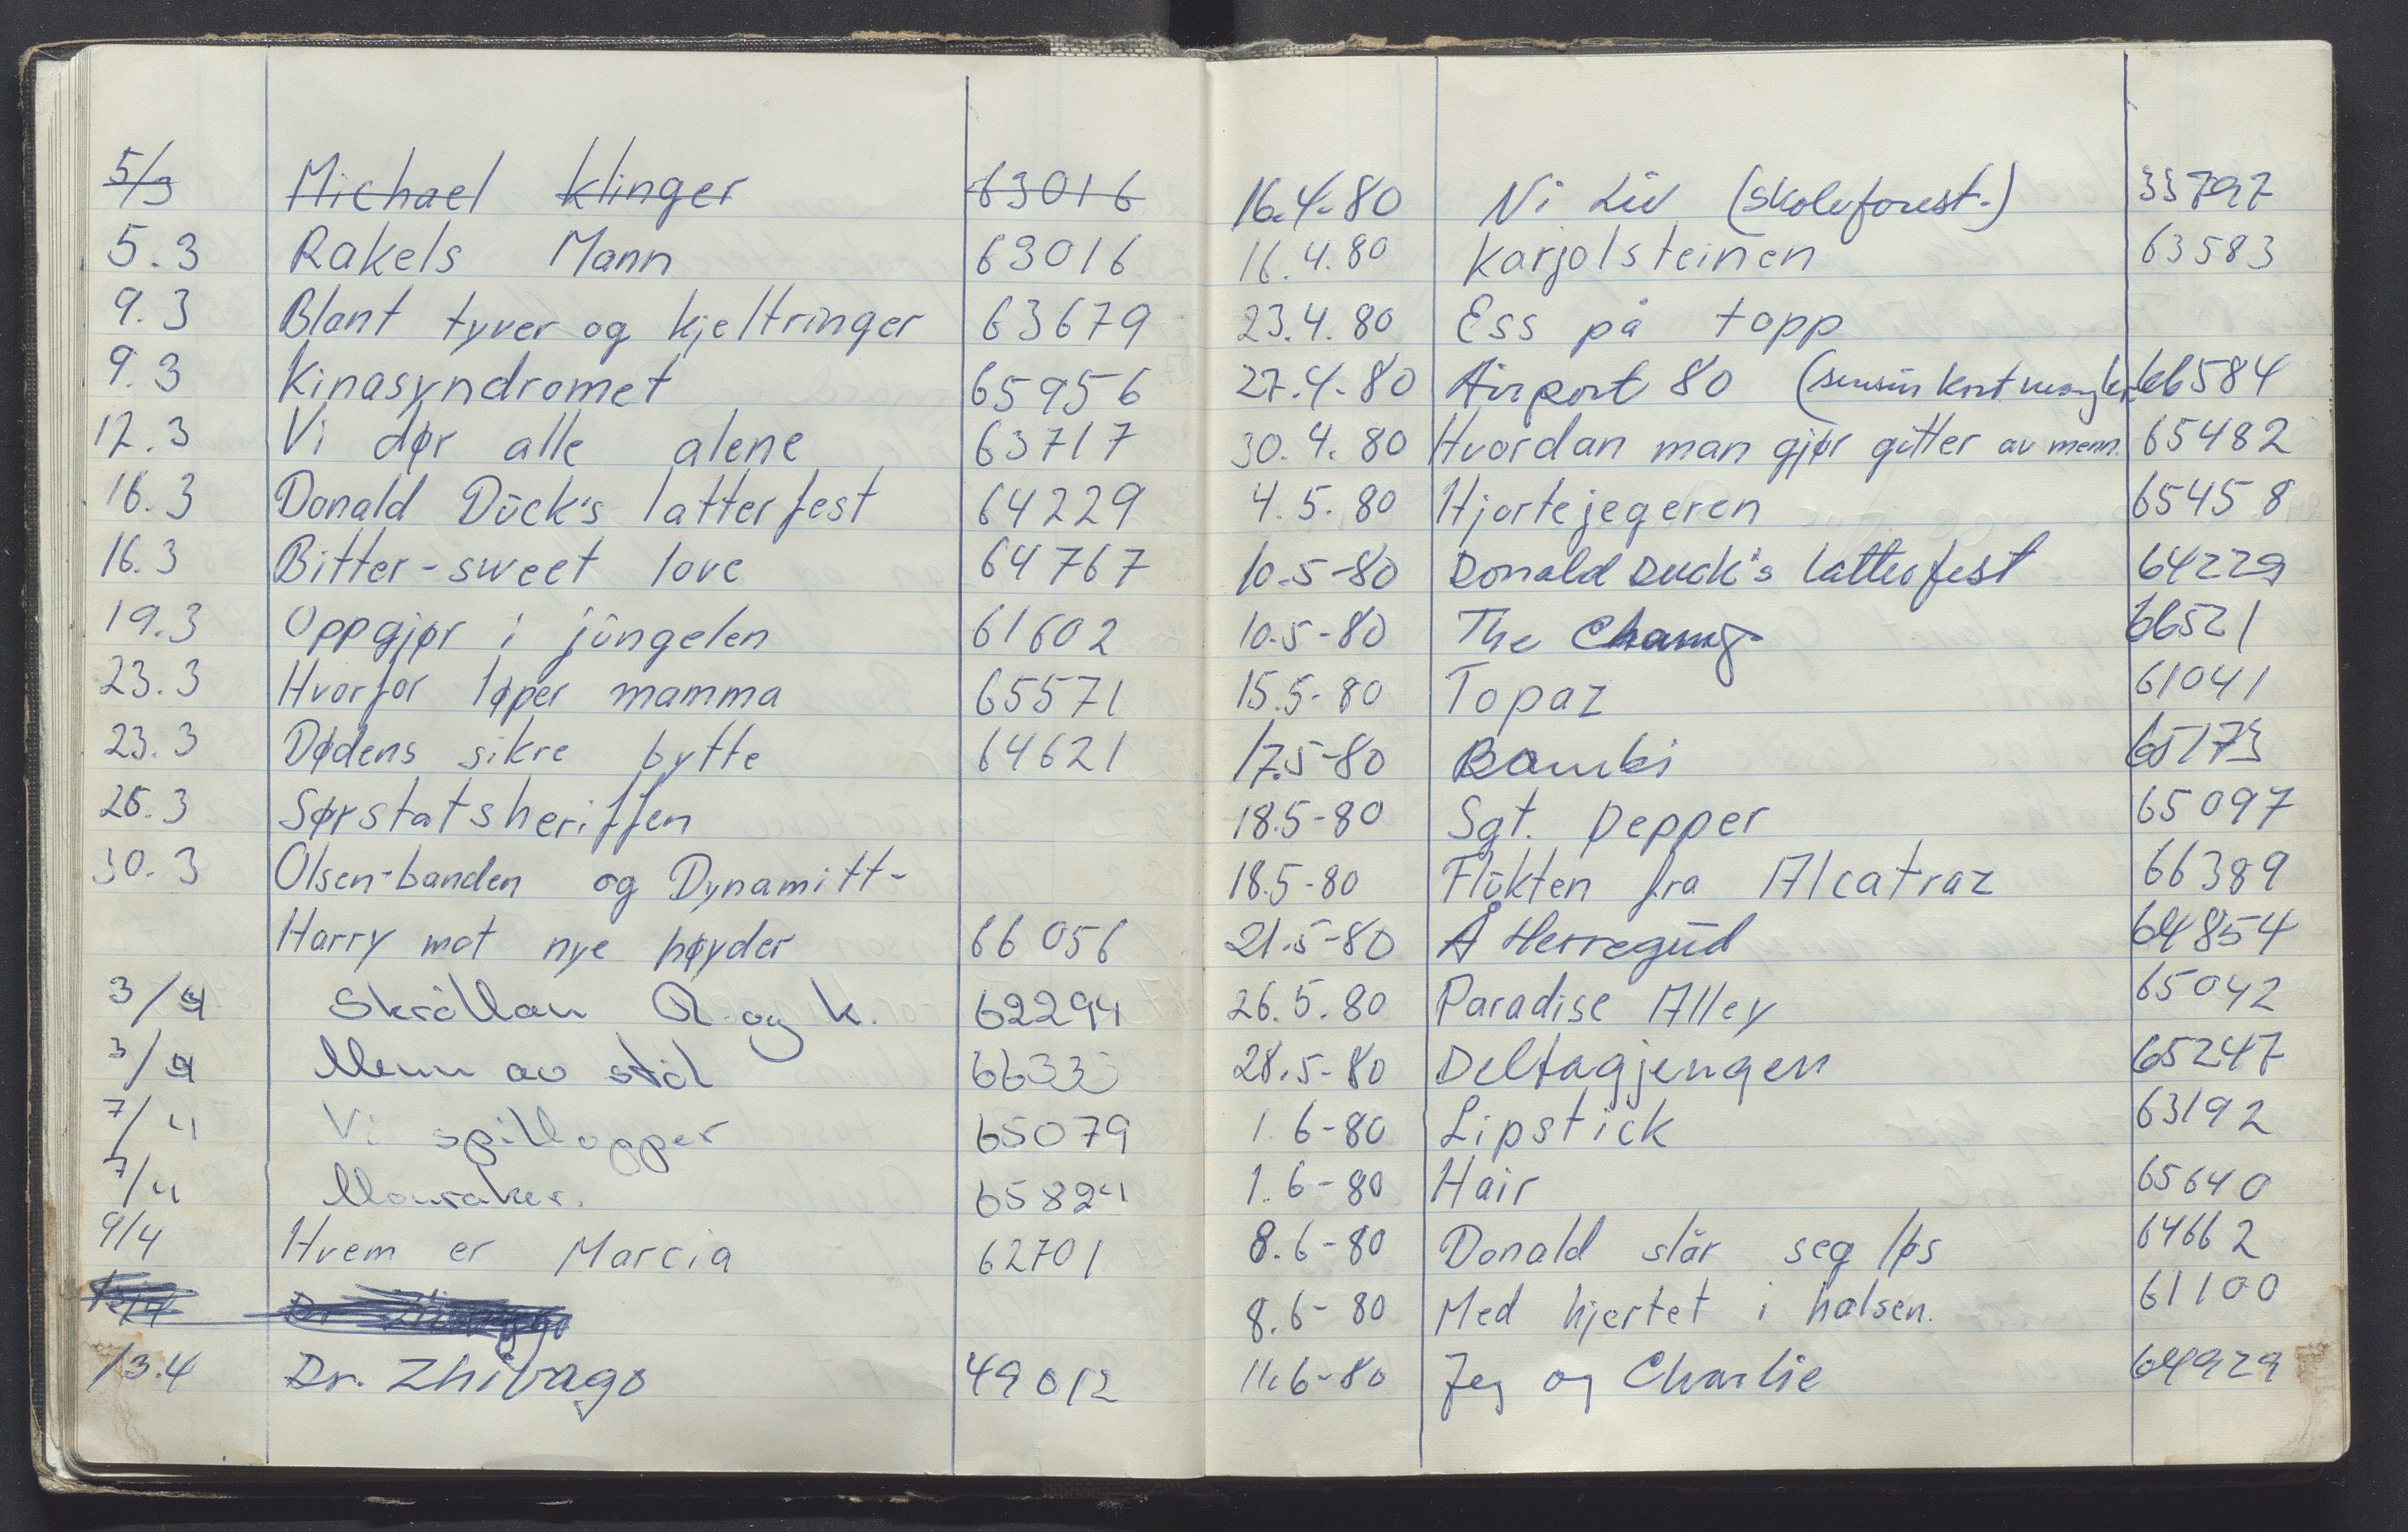 5/3 Michael Klinger 63016
5.3 Rakels Mann 63016
9.3 Blant tyver og kjeltringer 63679
9.3 Kinasyndromet 65956
12.3 Vi dør alle alene 63717
16.3 Donald Duck's latterfest 64229
16.3 Bitter-sweet love 64767
19.3 Oppgjør i jungelen 61602
23.3 Hvorfor løper mamma 65571
23.3 Dødens sikre bytte 64621
26.3 Sørstatsheriffen
30.3 Olsen-banden og Dynamitt-
Harry mot nye høyder 66056
3/4 Skrållan R. og K. 62294
3/4 Menn av stål
7/4 Vi spillopper 65079
7/4 Monraker. 65824
9/4 Hvem er Marcia 62701
Dr Zhivago
13.4 Dr. Zhivago 49012
16.4-80 Ni Liv (skoleforest.) 33797
16.4.80 Karjolsteinen 63583
23.4.80 Ess på topp
27.4-80 Airport 80 (sensurkort mangler 66584
30.4.80 Hvordan man gjør gutter av menn. 65482
4.5.80 Hjortejegeren 65458
10.5-80 Donald Duck's latterfest 64229
10.5-80 The Champ 66521
15.5-80 Topaz 61041
17.5-80 Bambi 65173
18.5-80 Sgt. Pepper 65097
18.5-80 Flukten fra Alcatraz 66389
21.5-80 Å Herregud 64854
26.5.80 Paradise Alley 65042
28.5-80 Deltagjengen 65247
1.6-80 Lipstick 63192
1.6-80 Hair 65640
8.6-80 Donald slår seg løs 64662
8.6-80 Med hjertet i halsen. 61100
11.6-80 Jeg og Charlie 64929